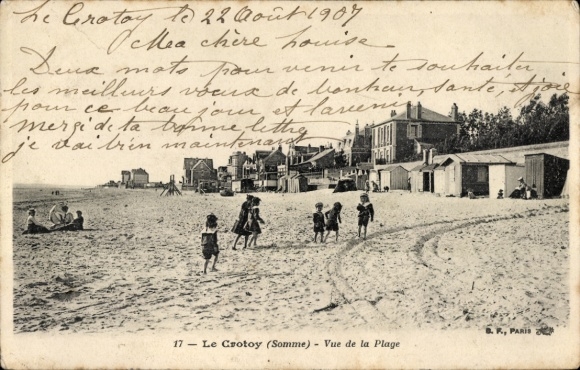 Le Crotoy le 22 Août 1907
Mea chère Louise
Deux mots pour venir te souhaiter
les meilleurs vœux de bonheur, santé, et joie
pour ce beau jour et l'avenir
mergi de ta bonne lettre
je vais bien maintenant
17 — Le Crotoy (Somme) - Vue de la Plage
B. F., PARIS